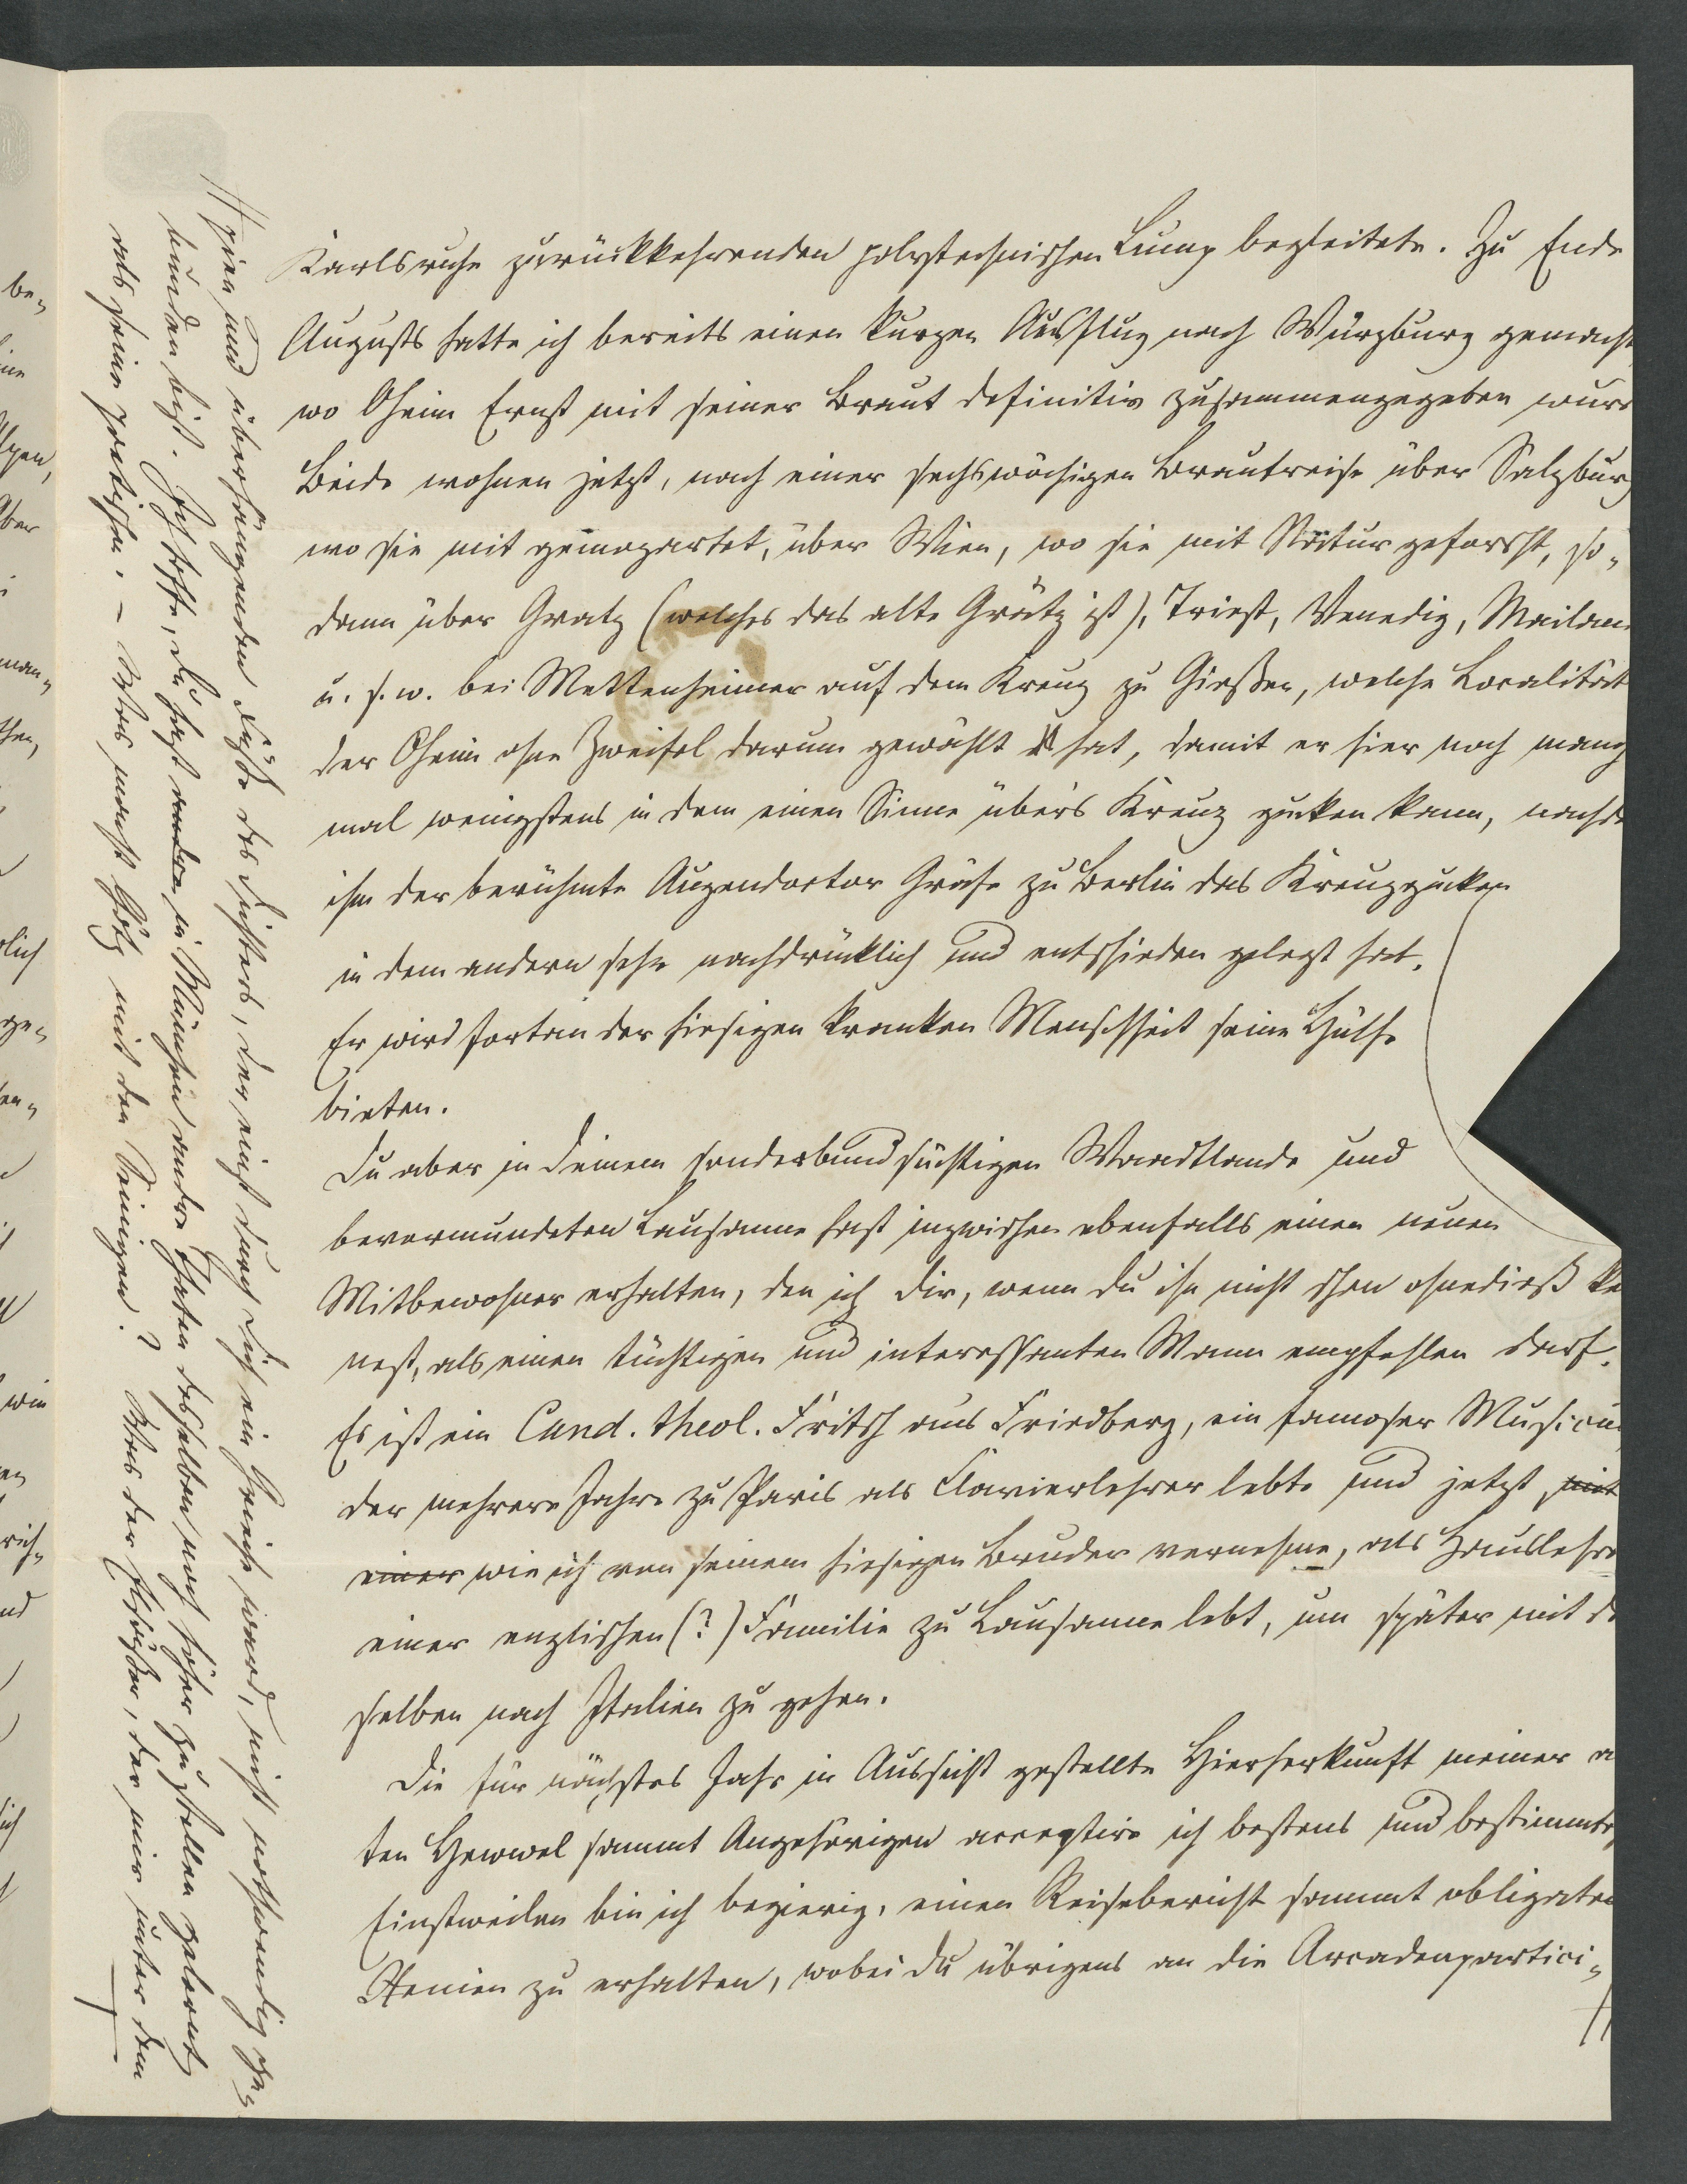 Karlsruhe zurückkehrenden polytechnischen Lump begleitete. Zu Ende
Augusts hatte ich bereits einen kurzen Ausflug nach Würzburg gemacht
wo Oheim Ernst mit seiner Braut definitiv zusammengegeben wur
Beide wohnen jetzt, nach einer sechswöchigen Brautreise über Salzburg
wo sie mit über Wien, wo sie mit Natur geforscht, so-
dann über Gratz (welches das alte Grätz ist), Triest, Venedig, Mailan
u. s. w. bei Mettenheimer auf dem Kreuz zu Gießen, welche Localität
der Oheim ohne Zweifel darum gewählt hat, damit er hier noch manch
mal wenigstens in dem einen Sinne über's Kreuz gucken kann, nachde
ihm der berühmte Augendoctor Gräfe zu Berlin das Kreuzgucken
in dem andern sehr nachdrücklich und entschieden gelegt hat.
Er wird fortan der hiesigen kranken Menschheit seine Hülfe
bieten.
Du aber in Deinem sonderbundsüchtigen Waadtlande und
bevormundeten Lausanne hast inzwischen ebenfalls einen neuen
Mitbewohner erhalten, den ich Dir, wenn Du ihn nicht schon ohnedieß ke
nest, als einen tüchtigen und interessanten Mann empfehlen darf.
Es ist ein Cand. theol. Fritsch aus Friedberg, ein famoser Musicu
der mehrere Jahre zu Paris als Clavierlehrer lebte und jetzt mit
einer wie ich von seinem hiesigen Bruder vernehme, als Hauslehre
einer englischen (?) Familie zu Lausanne lebt, um später mit de
selben nach Italien zu gehen.
Die für nächstes Jahr in Aussicht gestellte Hierherkunft meiner a
ten sammt Angehörigen acceptire ich bestens und bestimmte
Einstweilen bin ich begierig, einen Reisebericht sammt obligaten
Xenien zu erhalten, wobei Du übrigens an die Arcadenpartici-
pien und überhängenden Füße des Dichters, der einst durch Dich ein ward, nicht nothwendig ge-
bunden bist. Ich hoffe, Du hast andre in München andre Thaten desselben noch höher zu stellen gelernt
als seine poetischen. – Was macht Götz mit den Seinigen? Was der, der mir unter dem